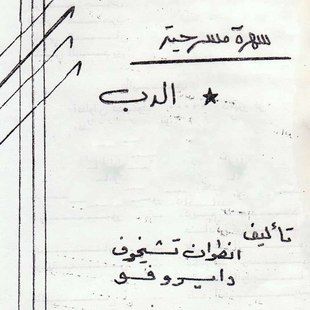 سهرة مسرحية
★ الدب
تأليف
انطوان تشيخوف
دايروفو